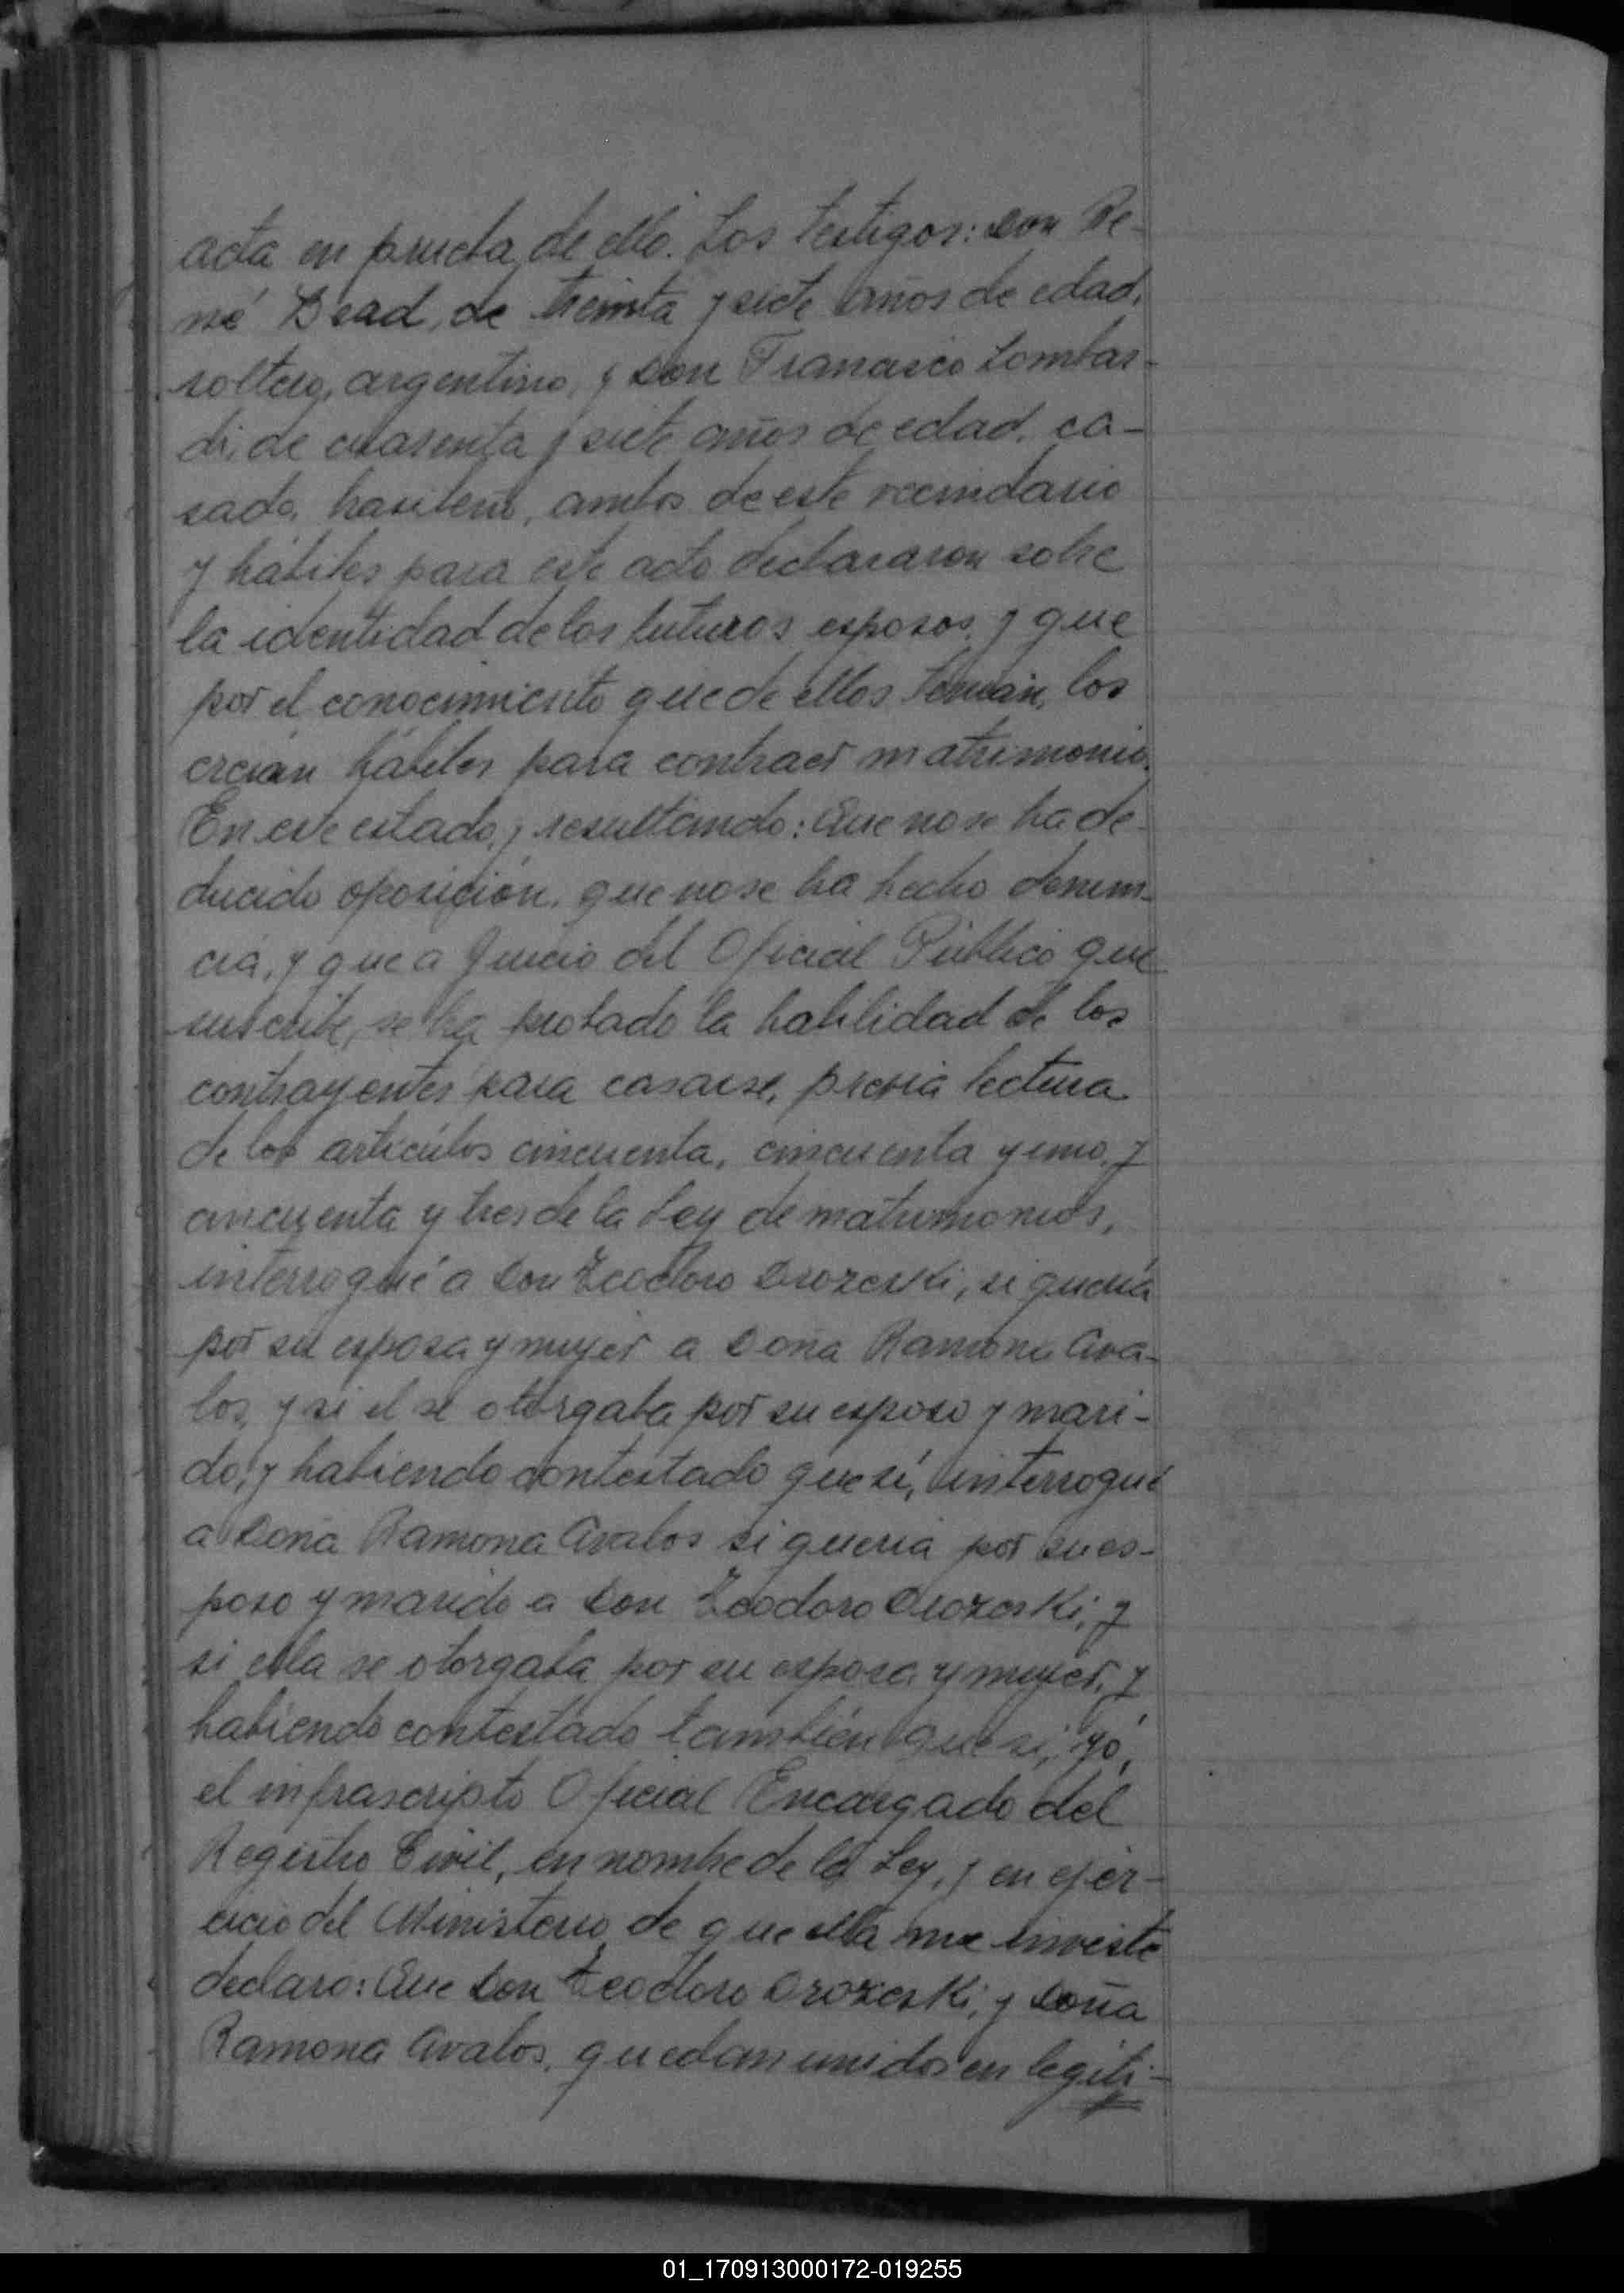 acta en prueba de ello. Los testigos: Don Re-
né Bead, de treinta y siete años de edad,
soltero, argentino, y Don Francisco Lombar-
di, de cuarenta y siete años de edad, ca-
sado, brasilero, ambos de este vecindario
y hábiles para este acto declararon sobre
la identidad de los futuros esposos, y que
por el conocimiento que de ellos tenían, los
creían hábiles para contraer matrimonio.
En este estado, y resultando: Que no se ha de-
ducido oposición, que no se ha hecho denun-
cia, y que a juicio del Oficial Público que
suscribe, se ha probado la habilidad de los
contrayentes para casarse, previa lectura
de los artículos cincuenta, cincuenta y uno, y
cincuenta y tres de la Ley de matrimonios,
interrogué a Don Teodoro Drozeski, si quería
por su esposa y mujer a Doña Ramona Ava-
los, y si el se otorgaba por su esposo y mari-
do, y habiendo contestado que sí, interrogué
a Doña Ramona Avalos si quería por su es-
poso y marido a Don Teodoro Drozeski, y
si ella se otorgaba por su esposa y mujer, y
habiendo contestado también que si, yó,
el infrascripto Oficial Encargado del
Registro Civil, en nombre de la Ley, y en ejer-
cicio del Ministerio de que ella me inviste
declaro: Que Don Teodoro Drozeski, y Doña
Ramona Avalos, quedan unidos en legíti-
01_170913000172-019255